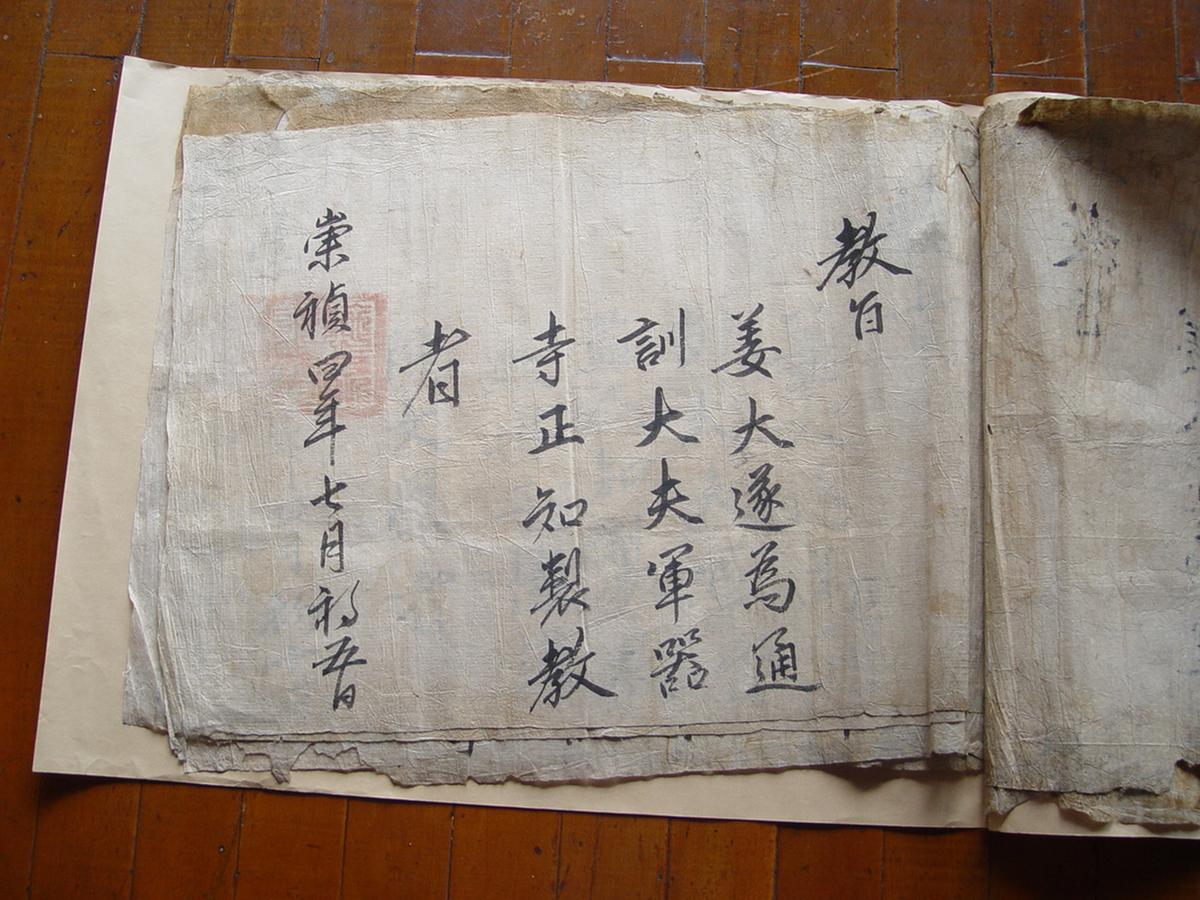 教旨
姜大遂為通
訓大夫軍器
寺正知製教
者
崇禎四年七月初五日